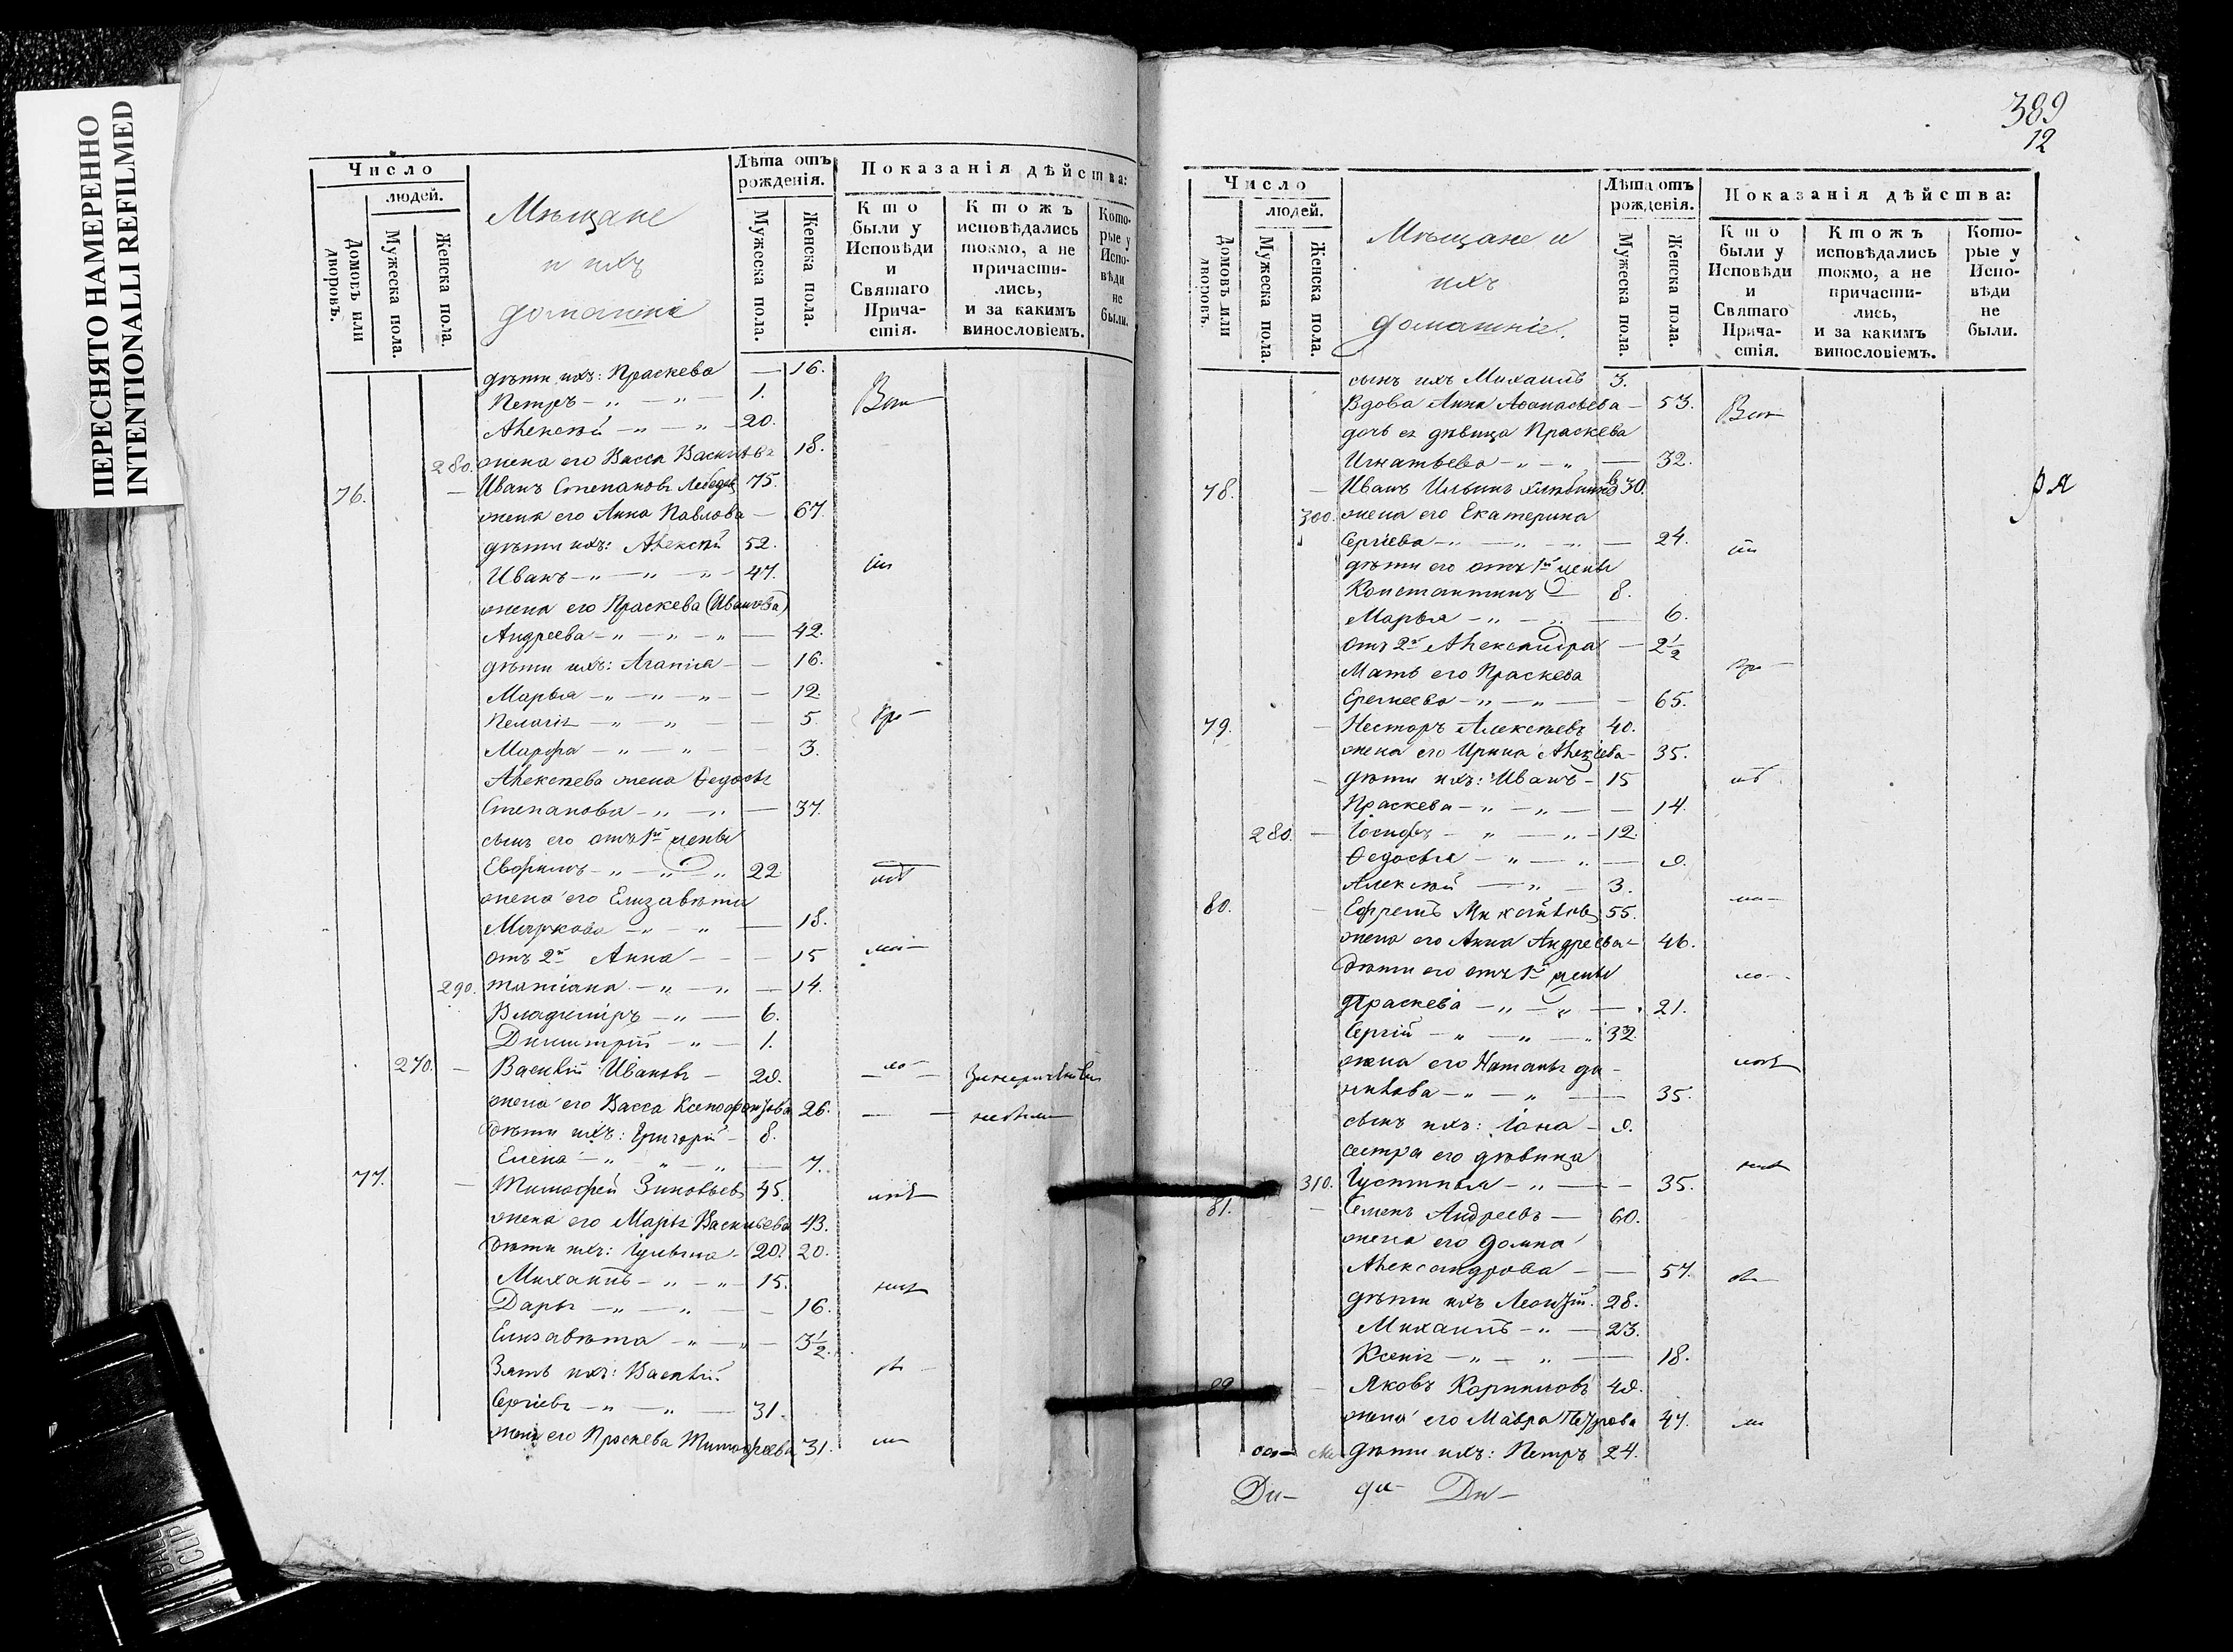 ПЕРЕСНЯТО НАМЕРЕННО
INTENTIONALLI REFILMED
BALL
CLIP
Число
людей.
Домовъ или дворовъ.
Мужеска пола.
Женска пола.
Мѣщане
и ихъ
домашніе
Лѣта отъ рожденія.
Мужеска пола.
Женска пола.
Показанія дѣйства:
Кто были у Исповѣди и Святаго Причастія.
Ктожъ исповѣдались токмо, а не причастились, и за какимъ винословіемъ.
Которые у Исповѣди не были.
дѣти ихъ: Праскева — 16.
Петръ — 1.
Алексѣй — 20.
280. жена его Васса Васильева 18.
76. — Иванъ Степановъ Лебедев 75.
жена его Анна Павлова — 67.
дѣти ихъ: Алексѣй 52.
Иванъ — 47.
жена его Праскева (Иванова)
Андреева — 42.
дѣти ихъ: Агапія — 16.
Марья — 12.
Пелагія — 5.
Марфа — 3.
Алексѣева жена Ѳедосья
Степанова — 37.
сынъ его отъ 1й жены
Евфимъ — 22.
жена его Елизавета
Маркова — 18.
отъ 2й Анна — 15
290. татіана — 14.
Владиміръ — 6.
Димитрій — 1.
270. — Василій Ивановъ — 29.
жена его Васса Ксенофонтова 26.
дѣти ихъ: Григорій — 8.
Елена — 7.
77. — Тимофей Зиновьев 45.
жена его Марья Васильева 43.
дѣти ихъ: Іуліана — 20. 20.
Михаилъ — 15.
Дарья — 16.
Елизавета — 3½.
Зять ихъ: Василій
Сергіевъ — 31.
жена его Праскева Тимофеева 31.
389
12
Число
людей.
Домовъ или дворовъ.
Мужеска пола.
Женска пола.
Мѣщане и
ихъ
домашніе.
Лѣта отъ рожденія.
Мужеска пола.
Женска пола.
Показанія дѣйства:
Кто были у Исповѣди и Святаго Причастія.
Ктожъ исповѣдались токмо, а не причастились, и за какимъ винословіемъ.
Которые у Исповѣди не были.
сынъ ихъ Михаилъ 3.
Вдова Анна Афанасьева — 53.
дочь ея дѣвица Праскева
Игнатьева — 32.
78. — Иванъ Ильинъ 30.
300. жена его Екатерина
Сергіева — 24.
дѣти его отъ 1й жены
Константинъ — 8.
Марья — 6.
отъ 2й Александра — 2½
Мать его Праскева
Еремеева — 65.
79. — Несторъ Алексѣевъ 40.
жена его Ирина Алексіева — 35.
— дѣти ихъ: Иванъ — 15
Праскева — 14.
280. — Іосифъ — 12.
Ѳедосья — 9.
Алексѣй — 3.
80. — Ефремъ 55.
жена его Анна Андреева — 46.
дѣти его отъ 1й жены
Праскева — 21.
Сергій — 32.
жена его Наталья да-
нилова — 35.
сынъ ихъ: Іона — 9.
сестра его дѣвица
310. Іустинья — 35.
81. — Семенъ Андреевъ — 60.
жена его домна
Александрова — 57.
дѣти ихъ Леонтій. 28.
Михаилъ — 23.
Ксенія — 18.
— Яковъ Кирилловъ 49.
жена его Мавра Петрова 47.
дѣти ихъ: Петръ 24.